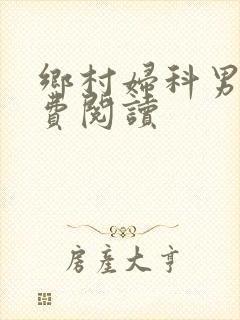 鄉村婦科男
費閱讀
房產大亨